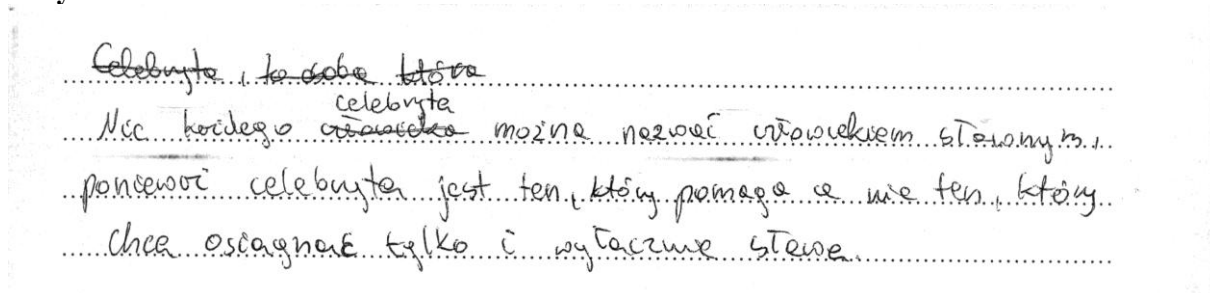 Celebryta, to osoba która
celebryta
Nie każdego człowieka można nazwać człowiekiem sławnym,
ponieważ celebrytą jest ten, który pomaga a nie ten, który
chce osiągnąć tylko i wyłącznie sławę.